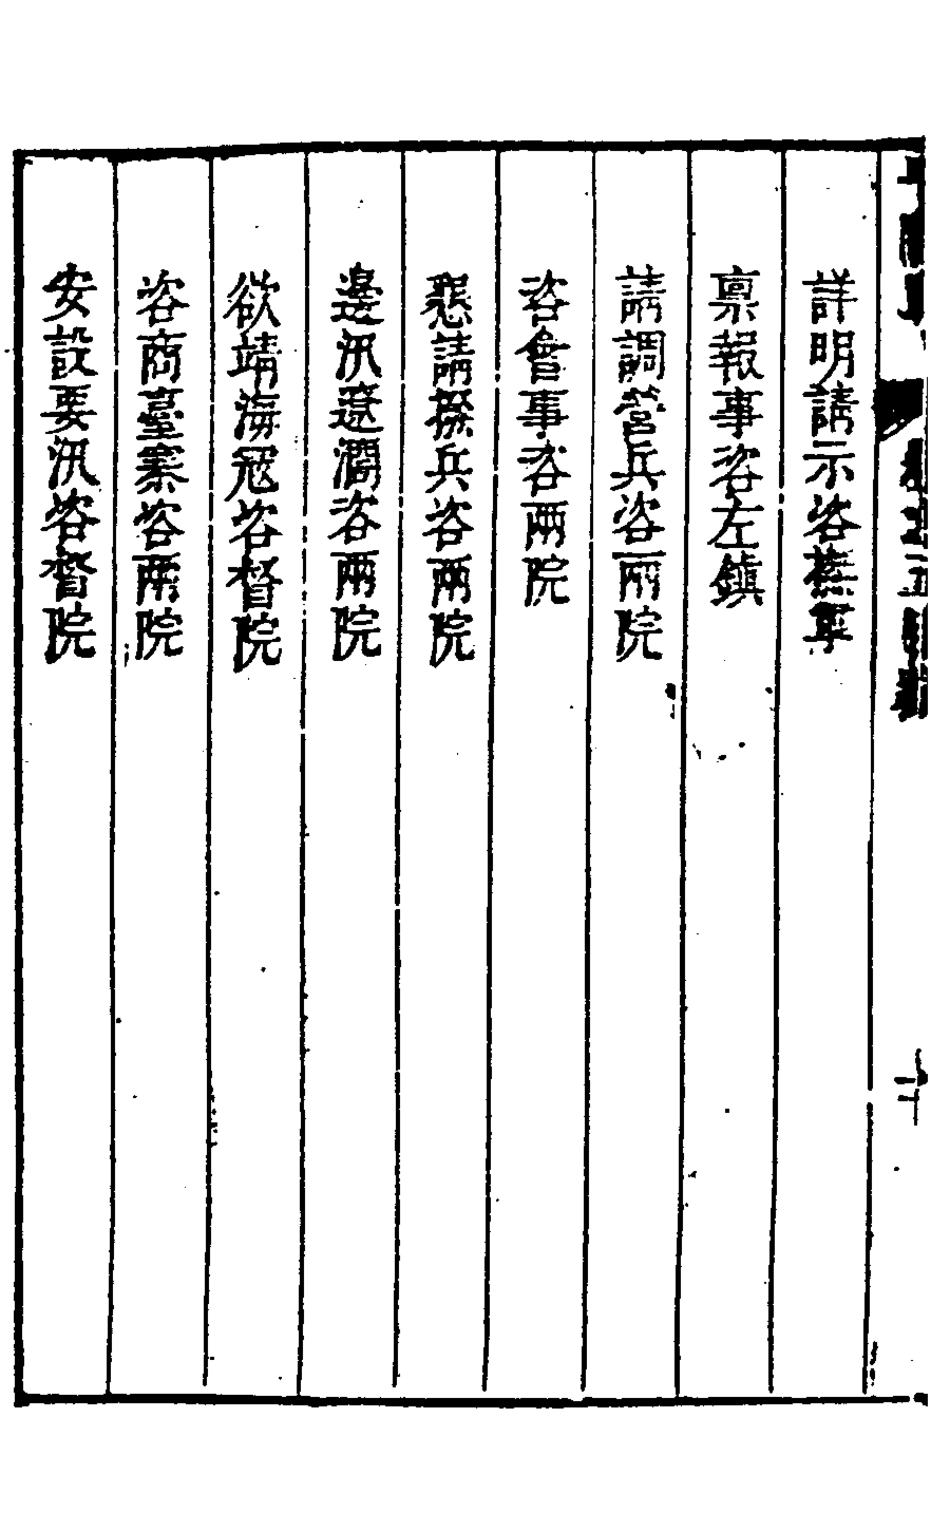 詳明請示咨撫軍
稟報事咨左鎮
請調營兵咨兩院
咨會事咨兩院
懇請撥兵咨兩院
邊汛遼濶咨兩院
欲靖海寇咨督院
咨商臺寨咨兩院
安設要汛咨督院